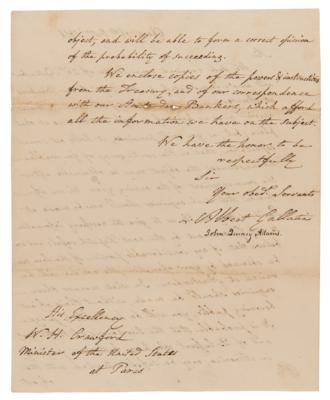 object, and will be able to form a correct opinion
of the probability of succeeding.
We enclose copies of the powers & instructions
from the Treasury, and of our correspondence
with our Amsterdam Bankers, which afford
all the information we have on the subject.
We have the honor to be
respectfully
Sir
Your obedt. Servants
Albert Gallatin
John Quincy Adams.
His Excellency
W. H. Crawford
Minister of the United States
at Paris